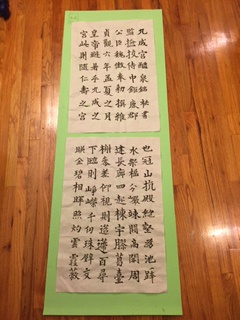 九成宮醴泉銘祕書
監撿挍侍中鉅鹿郡
公臣魏徵奉勅撰維
貞觀六年孟夏之月
皇帝避暑乎九成之
宮此則隨仁壽之宮
也冠山抗殿絕壑爲池跨
水架楹分巖竦闕高閣周
建長廊四起棟宇膠葛臺
榭參差仰視則迢遰百尋
下臨則崢嶸千仞珠璧交
暎金碧相暉照灼雲霞蔽